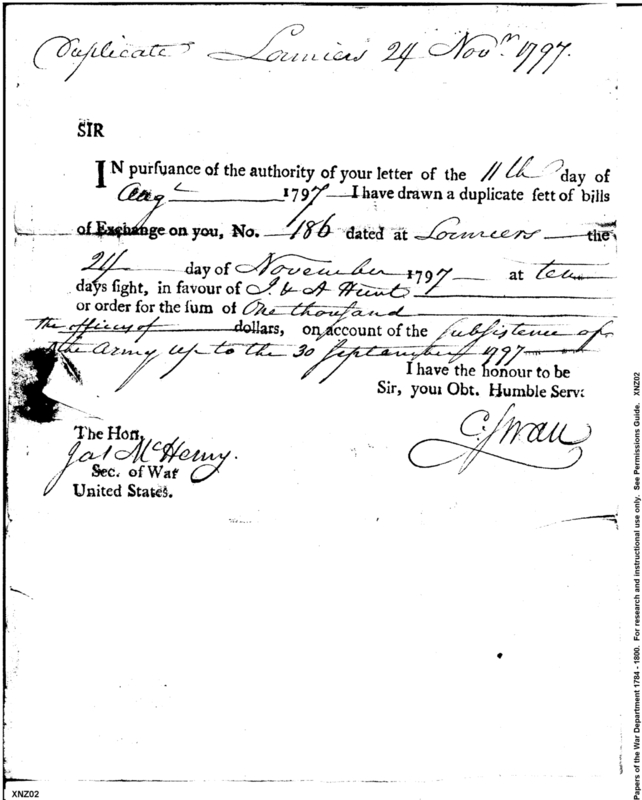 Duplicate Louviers 24 Novr. 1797.
SIR
IN purſuance of the authority of your letter of the 11th day of
Augt 1797 I have drawn a duplicate ſett of bills
of Exchange on you, No. 186 dated at Louviers the
24 day of November 1797 at ten
days ſight, in favour of J. & A Hunt
or order for the ſum of One thouſand
dollars, on account of the Subſistence of
the officers of
the Army up to the 30 September 1797
I have the honour to be
Sir, your Obt. Humble Serv:
C. Swan
The Hon.
Jas McHenry.
Sec. of War
United States.
Papers of the War Department 1784 - 1800. For research and instructional use only. See Permissions Guide. XNZ02
XNZ02